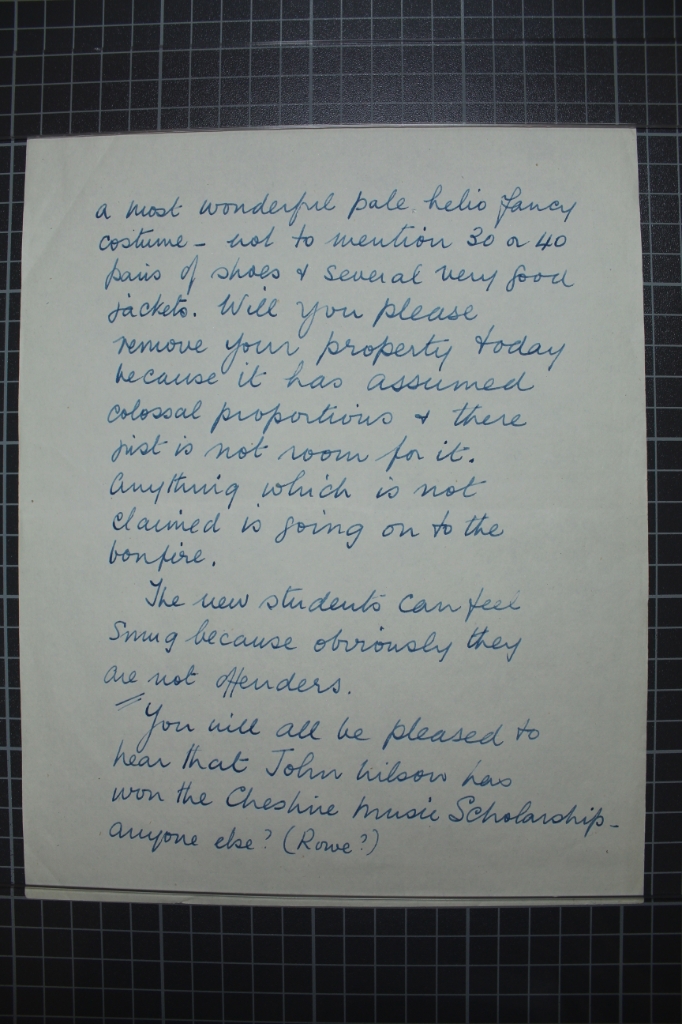 a most wonderful pale helio fancy
costume - not to mention 30 or 40
pairs of shoes & several very good
jackets. Will you please
remove your property today
because it has assumed
colossal proportions & there
just is not room for it.
Anything which is not
claimed is going on to the
bonfire.
The new students can feel
smug because obviously they
are not offenders.
You will all be pleased to
hear that John Wilson has
won the Cheshire Music Scholarship -
anyone else? (Rowe?)